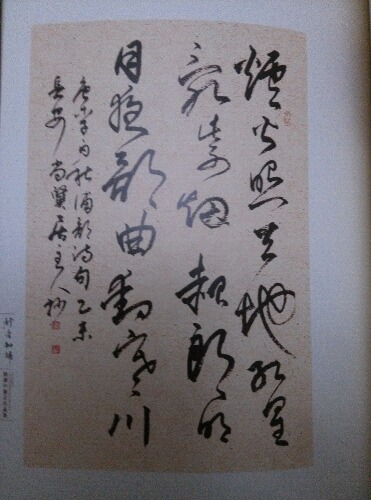 爐火照天地紅星
亂紫烟赧郎明
月夜歌曲動寒川
唐李白秋浦歌詩句乙未
長安尚居主人抄